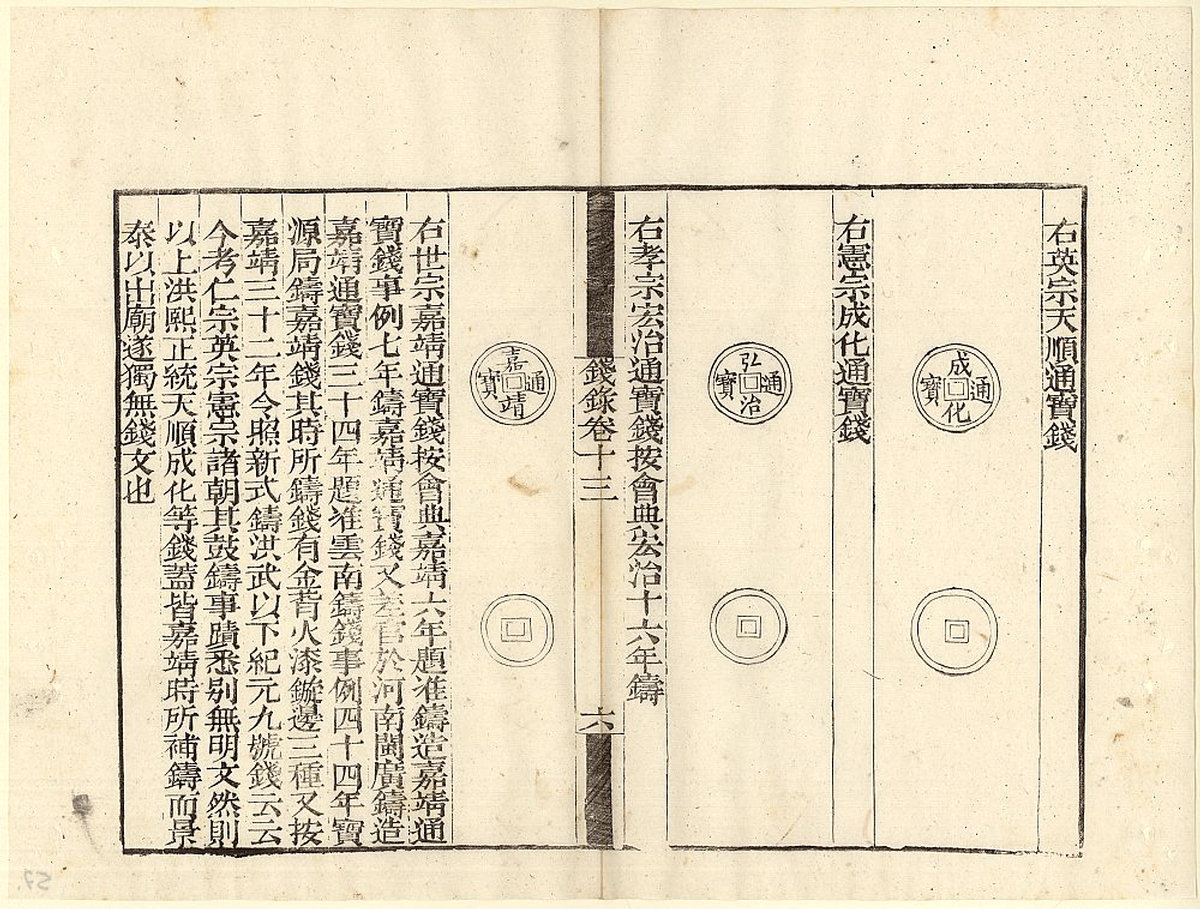 右英宗天順通寶錢
成化通寶
右憲宗成化通寶錢
弘治通寶
右孝宗宏治通寶錢按會典宏治十六年鑄
錢錄卷十三
六
嘉靖通寶
右世宗嘉靖通寶錢按會典嘉靖六年題准鑄造嘉靖通
寶錢事例七年鑄嘉靖通寶錢又差官於河南閩廣鑄造
嘉靖通寶錢三十四年題准雲南鑄錢事例四十四年寶
源局鑄嘉靖錢其時所鑄錢有金背火漆鏇邊三種又按
嘉靖三十二年令照新式鑄洪武以下紀元九號錢云云
今考仁宗英宗憲宗諸朝其鼓鑄事蹟悉別無明文然則
以上洪熙正統天順成化等錢蓋皆嘉靖時所補鑄而景
泰以出廟遂獨無錢文也
57